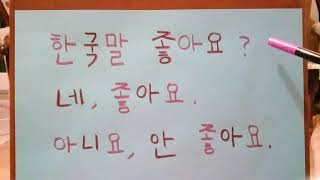 한국말 좋아요?
네, 좋아요.
아니요, 안 좋아요.